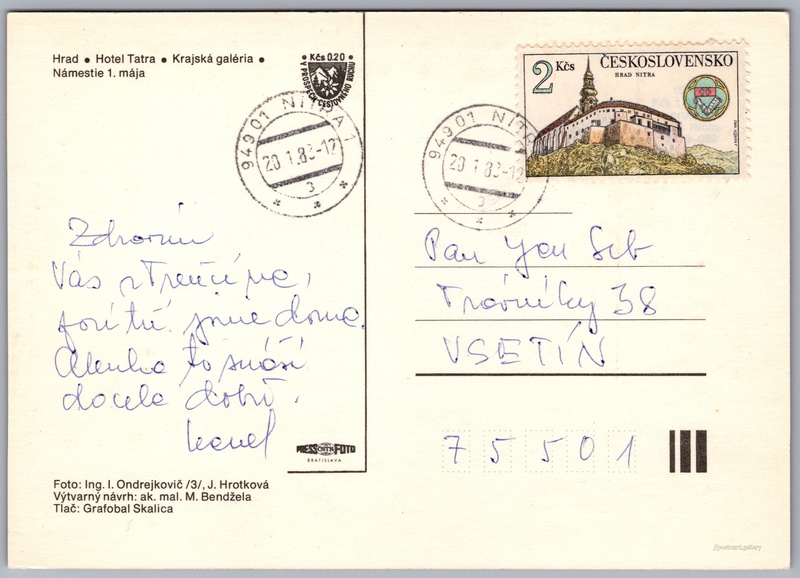 Hrad • Hotel Tatra • Krajská galéria •
Námestie 1. mája
Kčs 0.20
V PROSPECH CESTOVNÉHO RUCHU
949 01 NITRA 1
20.1.83-12
3
949 01 NITRA
20.1.83-12
3
2 Kčs
ČESKOSLOVENSKO
HRAD NITRA
Zdravím
Vás z
jsme doma.
Alenka to snáší
docela dobře.
Karel
Pan Jan
Trávníky 38
VSETÍN
75501
PRESSFOTO
BRATISLAVA
Foto: Ing. I. Ondrejkovič /3/, J. Hrotková
Výtvarný návrh: ak. mal. M. Bendžela
Tlač: Grafobal Skalica